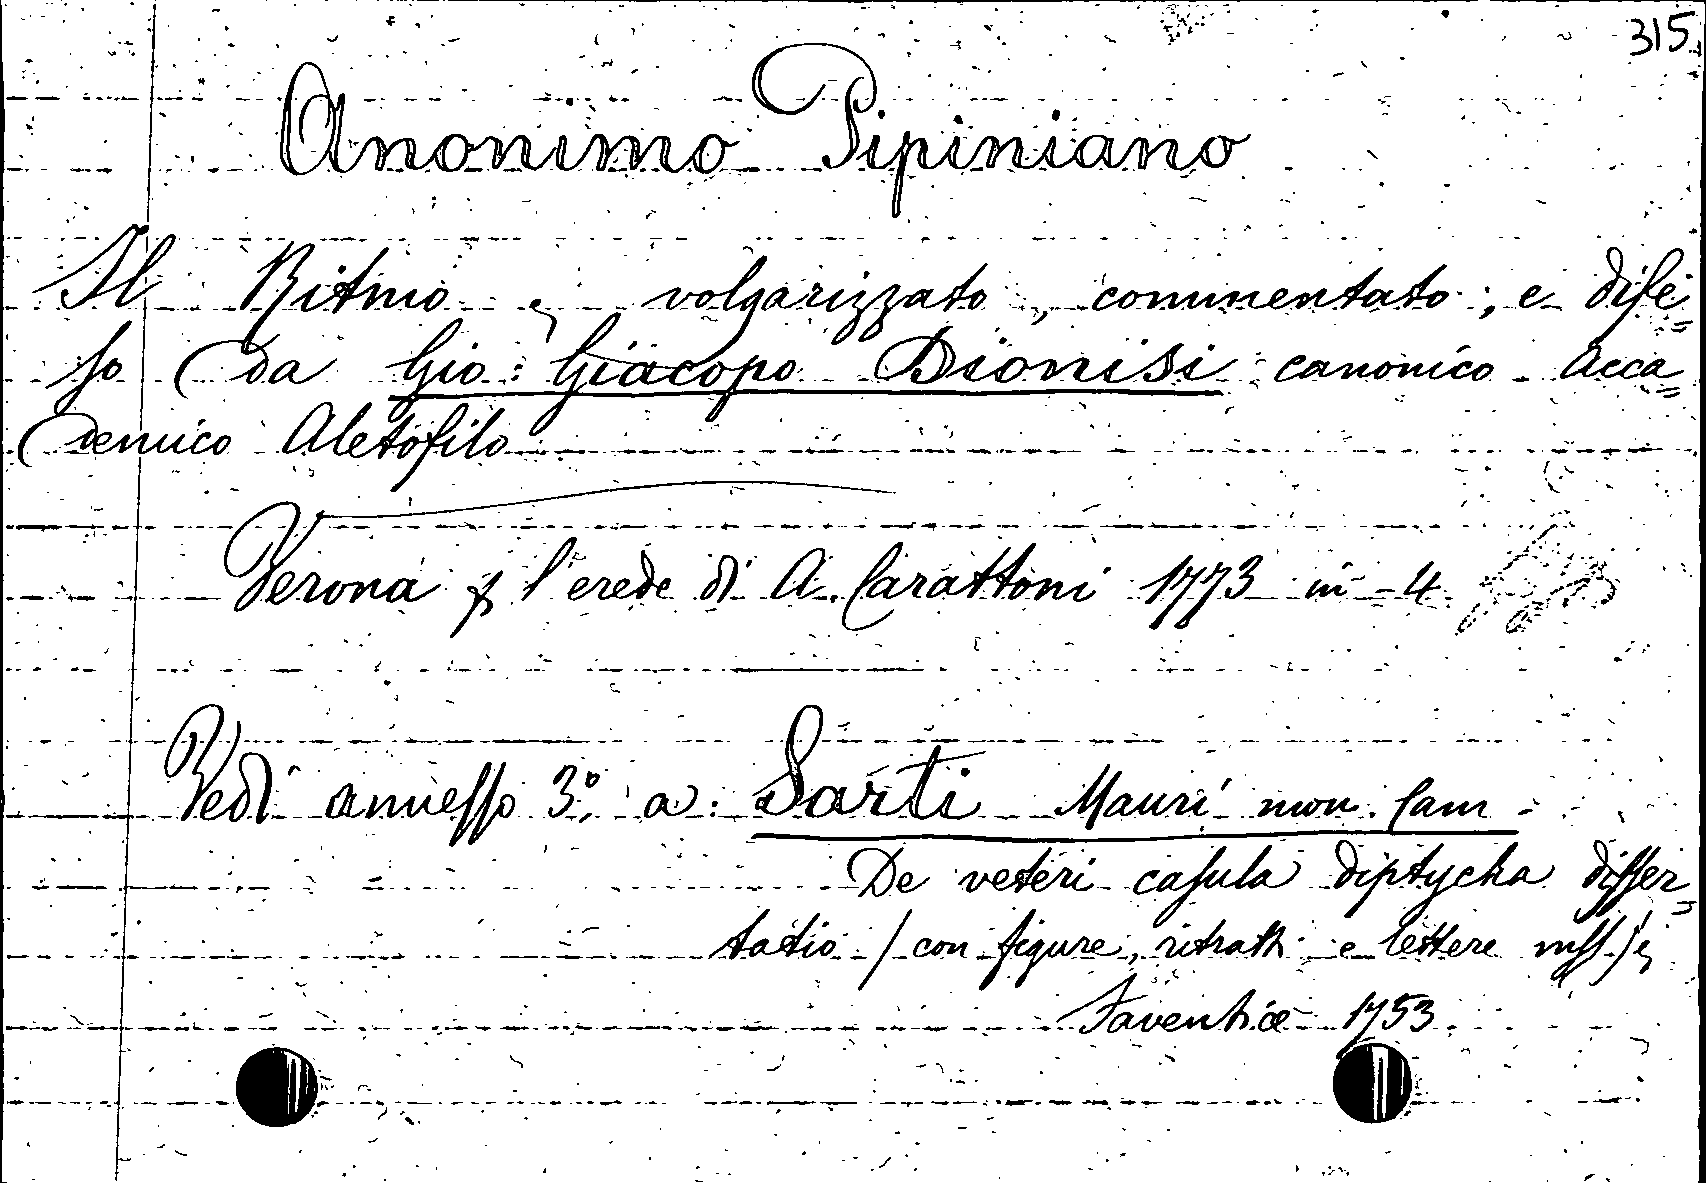 315
Anonimo Pipiniano
Il Ritmo, volgarizzato, commentato, e dife=
so da Gio: Giacopo Dionisi canonico Acca=
demico Aletofilo
Verona p l'erede di A. Carattoni 1773 in 4
Vedi annesso 3.º a: Sarti Mauri mon. Cam.
De veteri casula diptycha disser=
tatio (con figure, ritratti e lettere mss.);
Faventiæ 1753